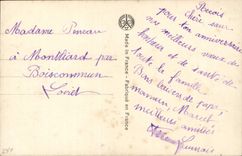 Madame Pureau
à Montliard par
Boiscommun
Loiret
Made in France - Fabriqué en France
Reçois
pour ton anniversaire
chère sœur
nos meilleurs vœux de
bonheur et de santé de
toute la famille.
Bons baisers de papa
maman, Marcel
meilleures amitiés